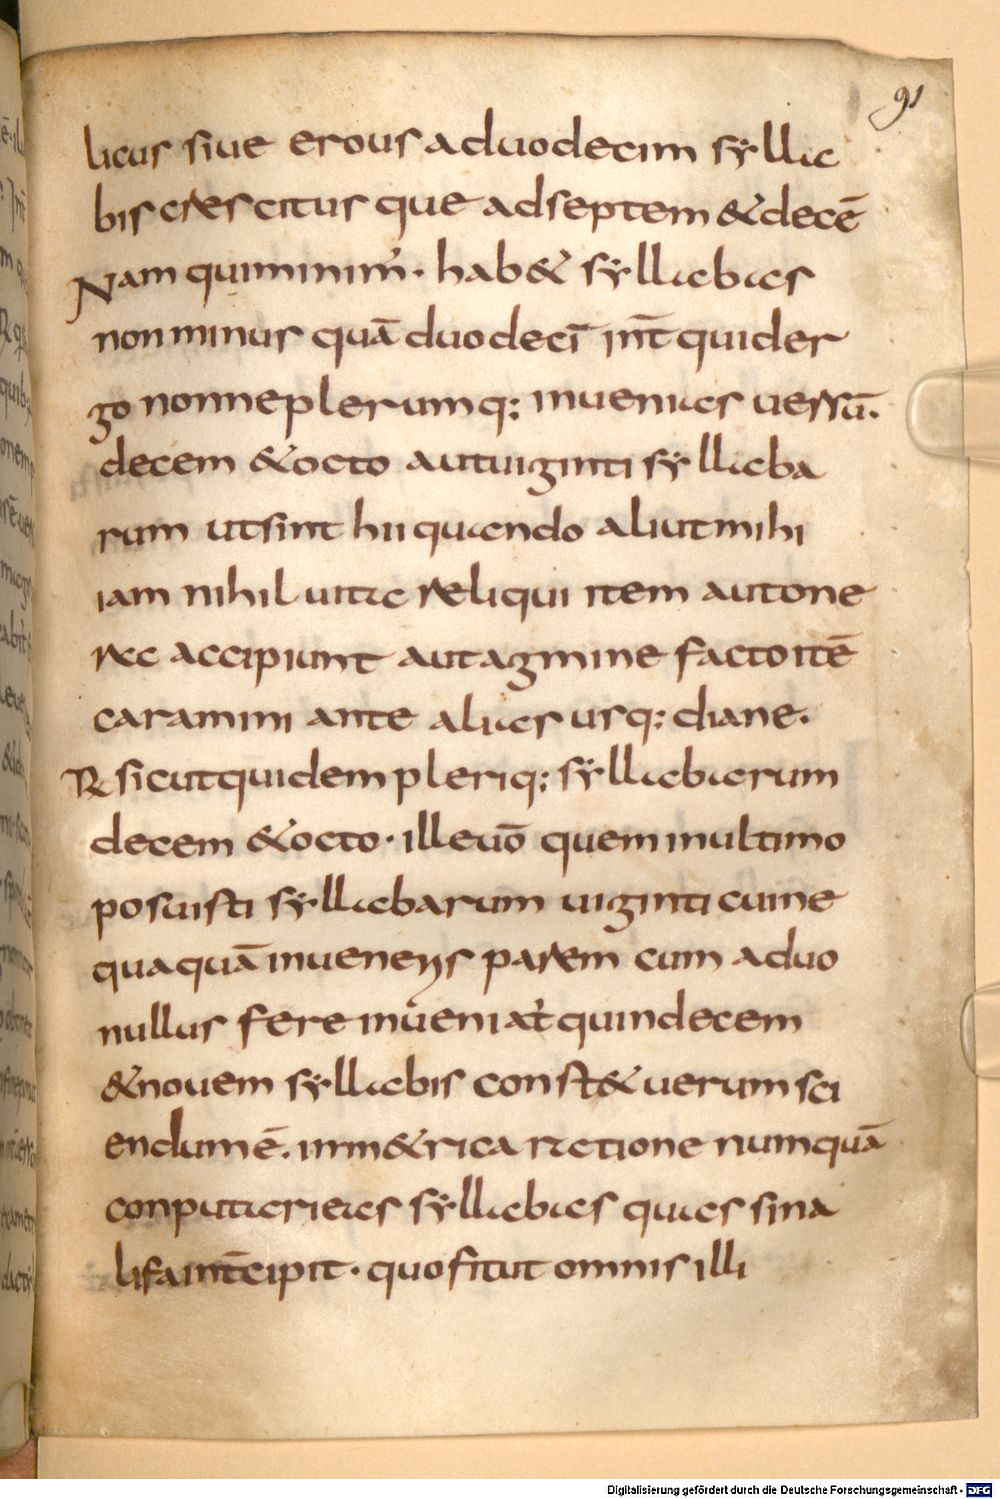 91
licus siue erous a duodecim sÿlla
bis crescit usque ad septem & decē
Nam qui minim'· hab& sÿllabas
non minus quā duodecī īnt̄ quid er
go nonne plerumq; inuenias uersū.
decem & octo aut uiginti sÿllaba
rum ut sint hii quando aliut mihi
iam nihil uitae reliqui item aut one
rac accipiunt aut agmine facto itē
caramini ante alias usq; diane.
R sicut quidem pleriq; sÿllabarum
decem & octo· ille uō quem in ultimo
posuisti sÿllabarum uiginti cui ne
quaquā inueneỹs parem cum a duo
nullus fere inueniat quin decem
& nouem sÿllabis const& uerum sci
endum ē. in m&rica ratione numquā
conputari eas sÿllabas quas sina
lifa int̄cipit· quo fit ut omnis illi
Digitalisierung gefördert durch die Deutsche Forschungsgemeinschaft - DFG